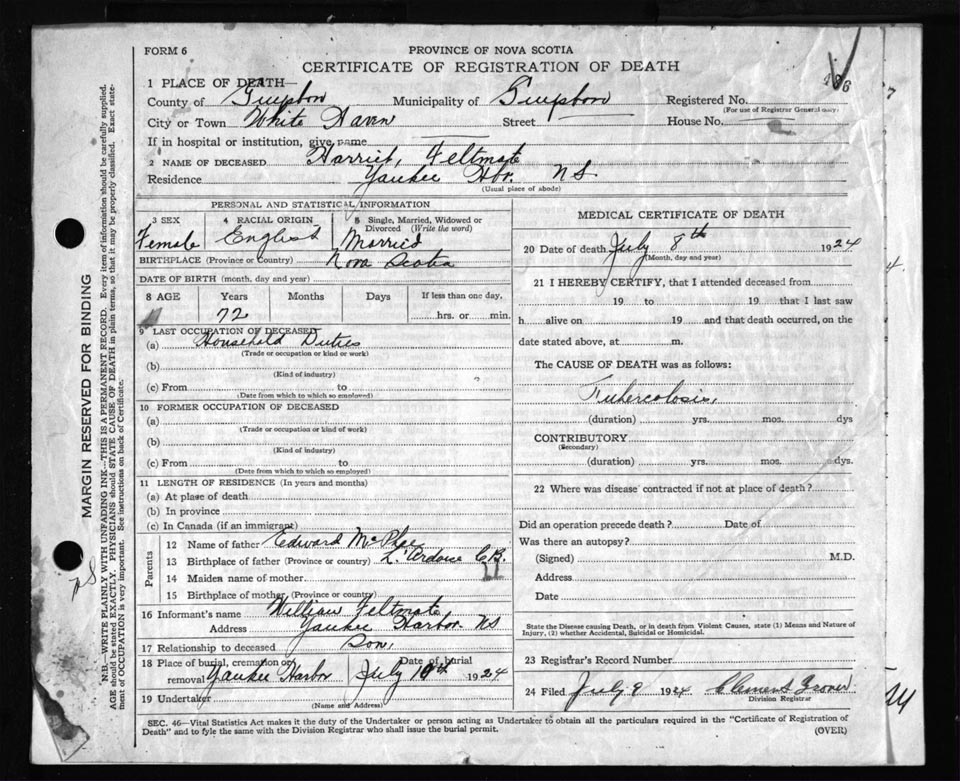 FORM 6
PROVINCE OF NOVA SCOTIA
CERTIFICATE OF REGISTRATION OF DEATH
1 PLACE OF DEATH—
County of Guysboro Municipality of Guysboro Registered No.
(For use of Registrar General only)
City or Town White Haven Street House No.
If in hospital or institution, give name
2 NAME OF DECEASED Harriet, Feltmate
Residence Yankee Hbr. N S.
(Usual place of abode)
PERSONAL AND STATISTICAL INFORMATION
3 SEX 4 RACIAL ORIGIN 5 Single, Married, Widowed or Divorced (Write the word)
Female English Married
BIRTHPLACE (Province or Country) Nova Scotia
DATE OF BIRTH (month, day and year)
8 AGE Years Months Days If less than one day,
72 hrs. or min.
9 LAST OCCUPATION OF DECEASED
(a) Household Duties
(Trade or occupation or kind or work)
(b)
(Kind of industry)
(c) From to
(Date from which to which so employed)
10 FORMER OCCUPATION OF DECEASED
(a)
(Trade or occupation or kind of work)
(b)
(Kind of industry)
(c) From to
(Date from which to which so employed)
11 LENGTH OF RESIDENCE (In years and months)
(a) At plase of death
(b) In province
(c) In Canada (if an immigrant)
Parents
12 Name of father Edward McPhee
13 Birthplace of father (Province or country) L'Ardoise C.B.
14 Maiden name of mother
15 Birthplace of mother (Province or country)
16 Informant's name William Feltmate
Address Yankee Harbor. N S
17 Relationship to deceased Son,
18 Place of burial, cremation or Date of burial
removal Yankee Harbor July 10th 1924
19 Undertaker
(Name and Address)
MEDICAL CERTIFICATE OF DEATH
20 Date of death July 8th 1924
(Month, day and year)
21 I HEREBY CERTIFY, that I attended deceased from
19 to 19 that I last saw
h alive on 19 and that death occurred, on the
date stated above, at m.
The CAUSE OF DEATH was as follows:
Tubercolosis,
(duration) yrs. mos. dys
CONTRIBUTORY
(Secondary)
(duration) yrs. mos. dys.
22 Where was disease contracted if not at place of death?
Did an operation precede death? Date of
Was there an autopsy?
(Signed) M.D.
Address
Date
State the Disease causing Death, or in death from Violent Causes, state (1) Means and Nature of
Injury, (2) whether Accidental, Suicidal or Homicidal.
23 Registrar's Record Number
24 Filed July 9 1924 Clement
Division Registrar
SEC. 46—Vital Statistics Act makes it the duty of the Undertaker or person acting as Undertaker to obtain all the particulars required in the "Certificate of Registration of
Death" and to fyle the same with the Division Registrar who shall issue the burial permit.
(OVER)
MARGIN RESERVED FOR BINDING
N.B.—WRITE PLAINLY WITH UNFADING INK—THIS IS A PERMANENT RECORD. Every item of information should be carefully supplied.
AGE should be stated EXACTLY. PHYSICIANS should STATE CAUSE OF DEATH in plain terms, so that it may be properly classified. Exact state-
ment of OCCUPATION is very important. See instructions on back of Certificate.